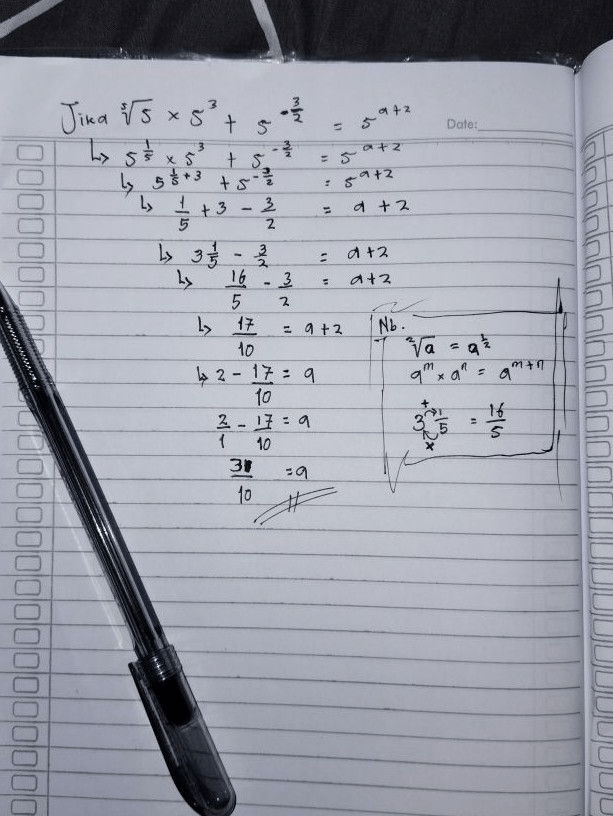 Jika ⁵√5 × 5³ + 5^(-3/2) = 5^(a+2)
Date:
↳ 5^(1/5) × 5³ + 5^(-3/2) = 5^(a+2)
↳ 5^(1/5+3) + 5^(-3/2) = 5^(a+2)
↳ 1/5 + 3 - 3/2 = a + 2
↳ 3 1/5 - 3/2 = a+2
↳ 16/5 - 3/2 = a+2
↳ 17/10 = a+2
↳ 2 - 17/10 = a
2/1 - 17/10 = a
3/10 = a
Nb.
²√a = a^(1/2)
a^m × a^n = a^(m+n)
3 + 1/5 × = 16/5